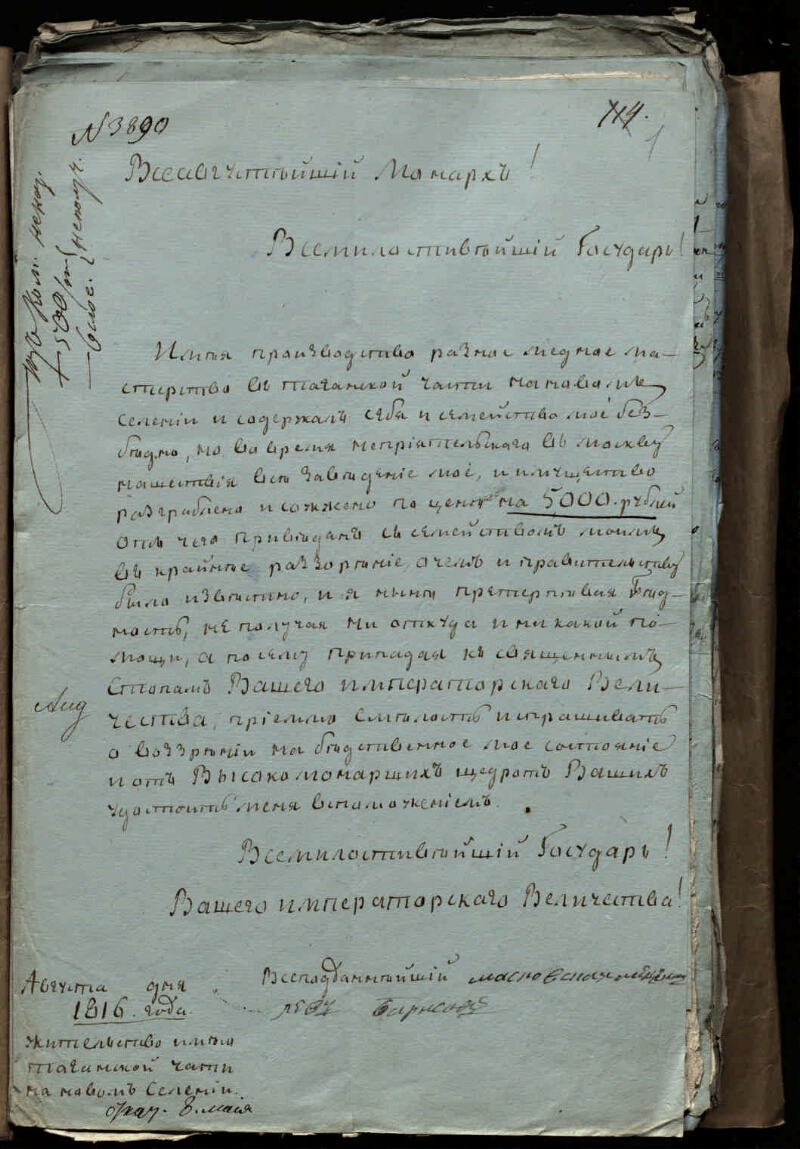 N 3890
Всеавгустѣйшій Монархъ!
Всемилостивѣйшій Государь!
Имѣя производство разное медное ма-
стерство въ таганской части на новомъ
селеніи и содержалъ себя и семейство мое без-
бѣдно, но во время непріятельскаго въ москву
нашествія все заведѣніе мое, и имущество
разграблено и сожжено по ценѣ на 5000. рублей
отъ чего приведенъ съ семействомъ моимъ
въ крайнѣе раззорѣніе, о чемъ и правительству
было извѣстно, и я нынѣ претерпѣвая бѣд-
ность, не получая ни откуда и ни какой по-
мощи, а по сему припадая къ священнымъ
Стопамъ Вашего императорскаго Вели-
чества, пріемлю Смѣлость испрашивать
о воззрѣніи на бѣдственное мое состояніе
и отъ Высокомонаршихъ щедротъ Вашихъ
удостоить меня вспоможеніемъ.
Всемилостивѣйшій Государь!
Вашего императорскаго Величества!
Всеподданнѣйшій московской
Борисовъ
Августа дня
1816. года.
жительство имѣю
таганской части
на новомъ Селеніи.